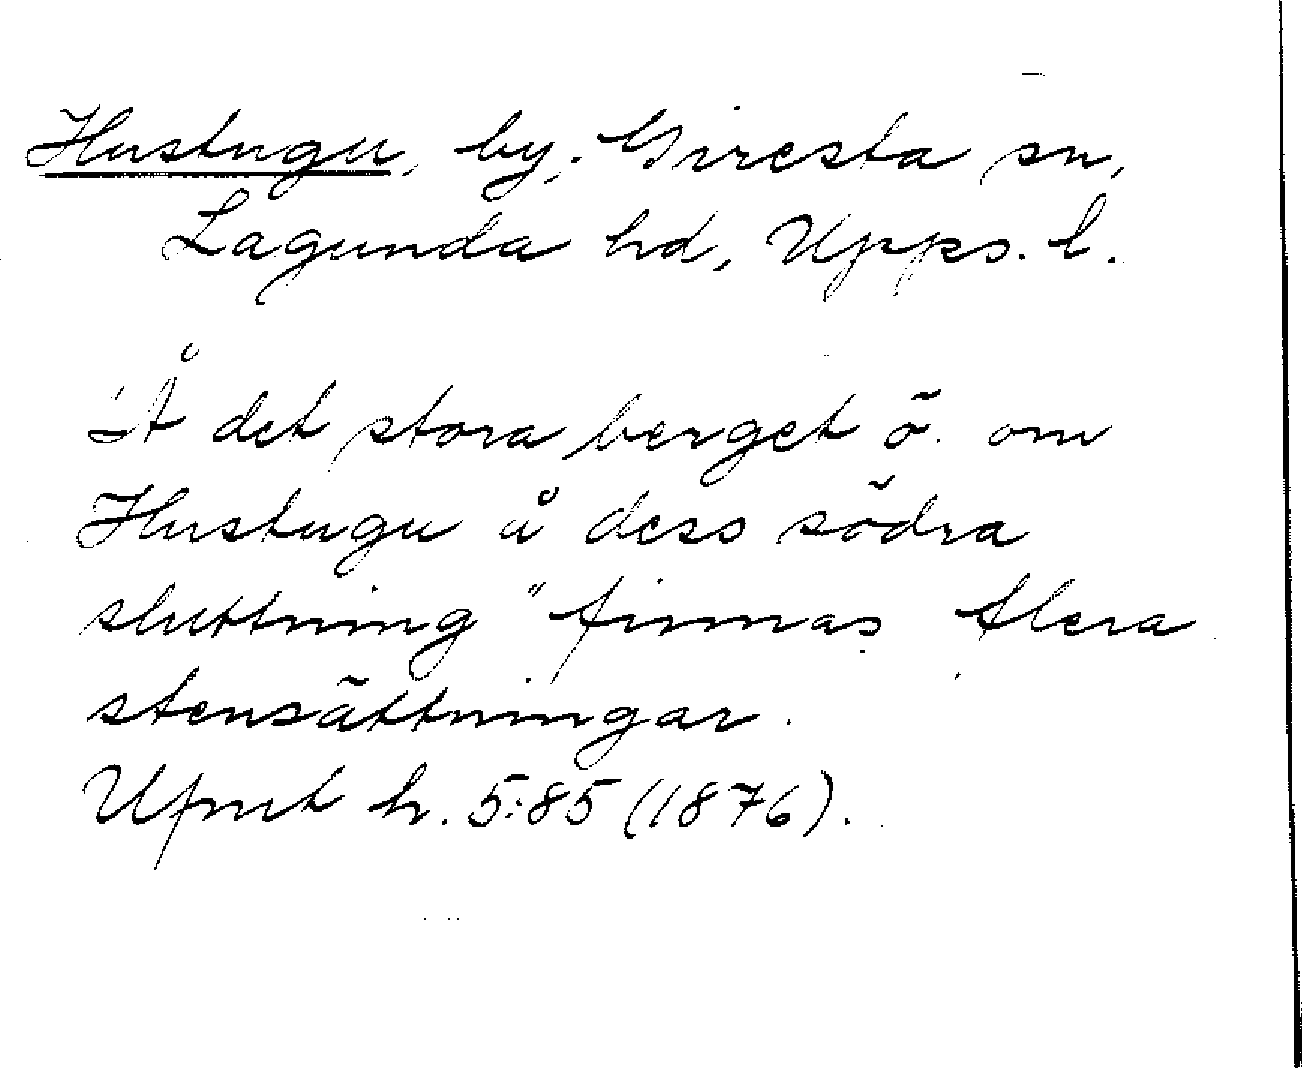 Hustugu, by, Giresta sn,
Lagunda hd, Upps. l.
"Å det stora berget ö. om
Hustugu å dess södra
sluttning" finnas flera
stensättningar.
Ufmt h. 5:85 (1876).